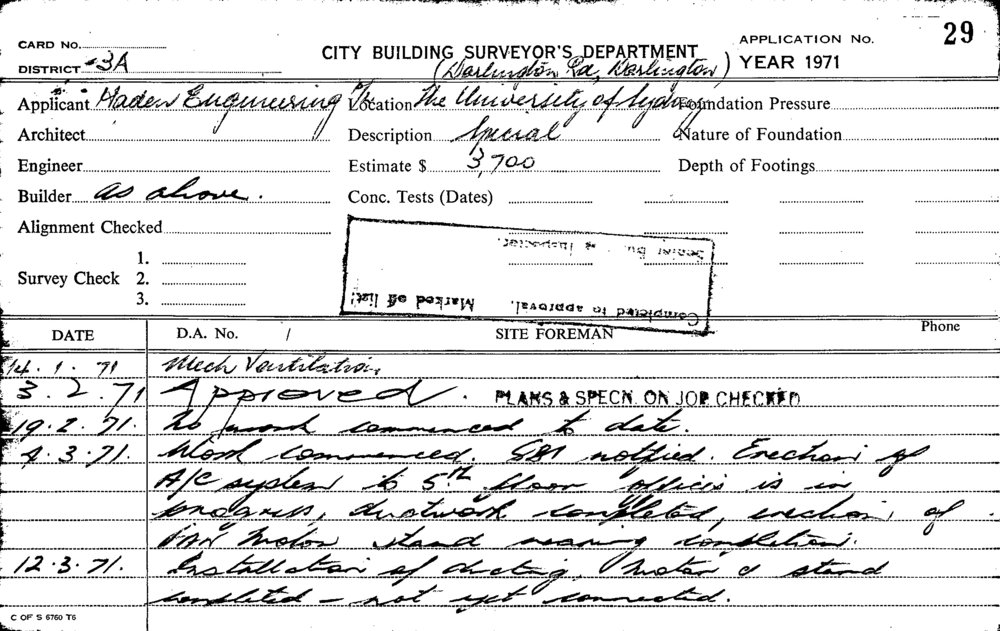 CARD No.
DISTRICT 3A
CITY BUILDING SURVEYOR'S DEPARTMENT
(Darlington Rd, Darlington)
APPLICATION No. 29
YEAR 1971
Applicant Haden Engineering P/L
Location The University of Sydney
Foundation Pressure
Architect
Description Special
Nature of Foundation
Engineer
Estimate $ 3,700
Depth of Footings
Builder as above.
Conc. Tests (Dates)
Alignment Checked
Survey Check
1.
2.
3.
Completed to approval.
Marked off list.
Senior Inspector.
DATE
D.A. No. /
SITE FOREMAN
Phone
14.1.71 Mech Ventilation.
3.2.71 Approved. PLANS & SPECN. ON JOB CHECKED
19.2.71. No work commenced to date.
4.3.71. Work commenced. SBI notified. Erection of
A/C system to 5th floor offices is in
progress, ductwork completed, erection of
FAN Motor stand nearing completion.
12.3.71. Installation of ducting, motor & stand
completed - not yet connected.
C OF S 6760 T6